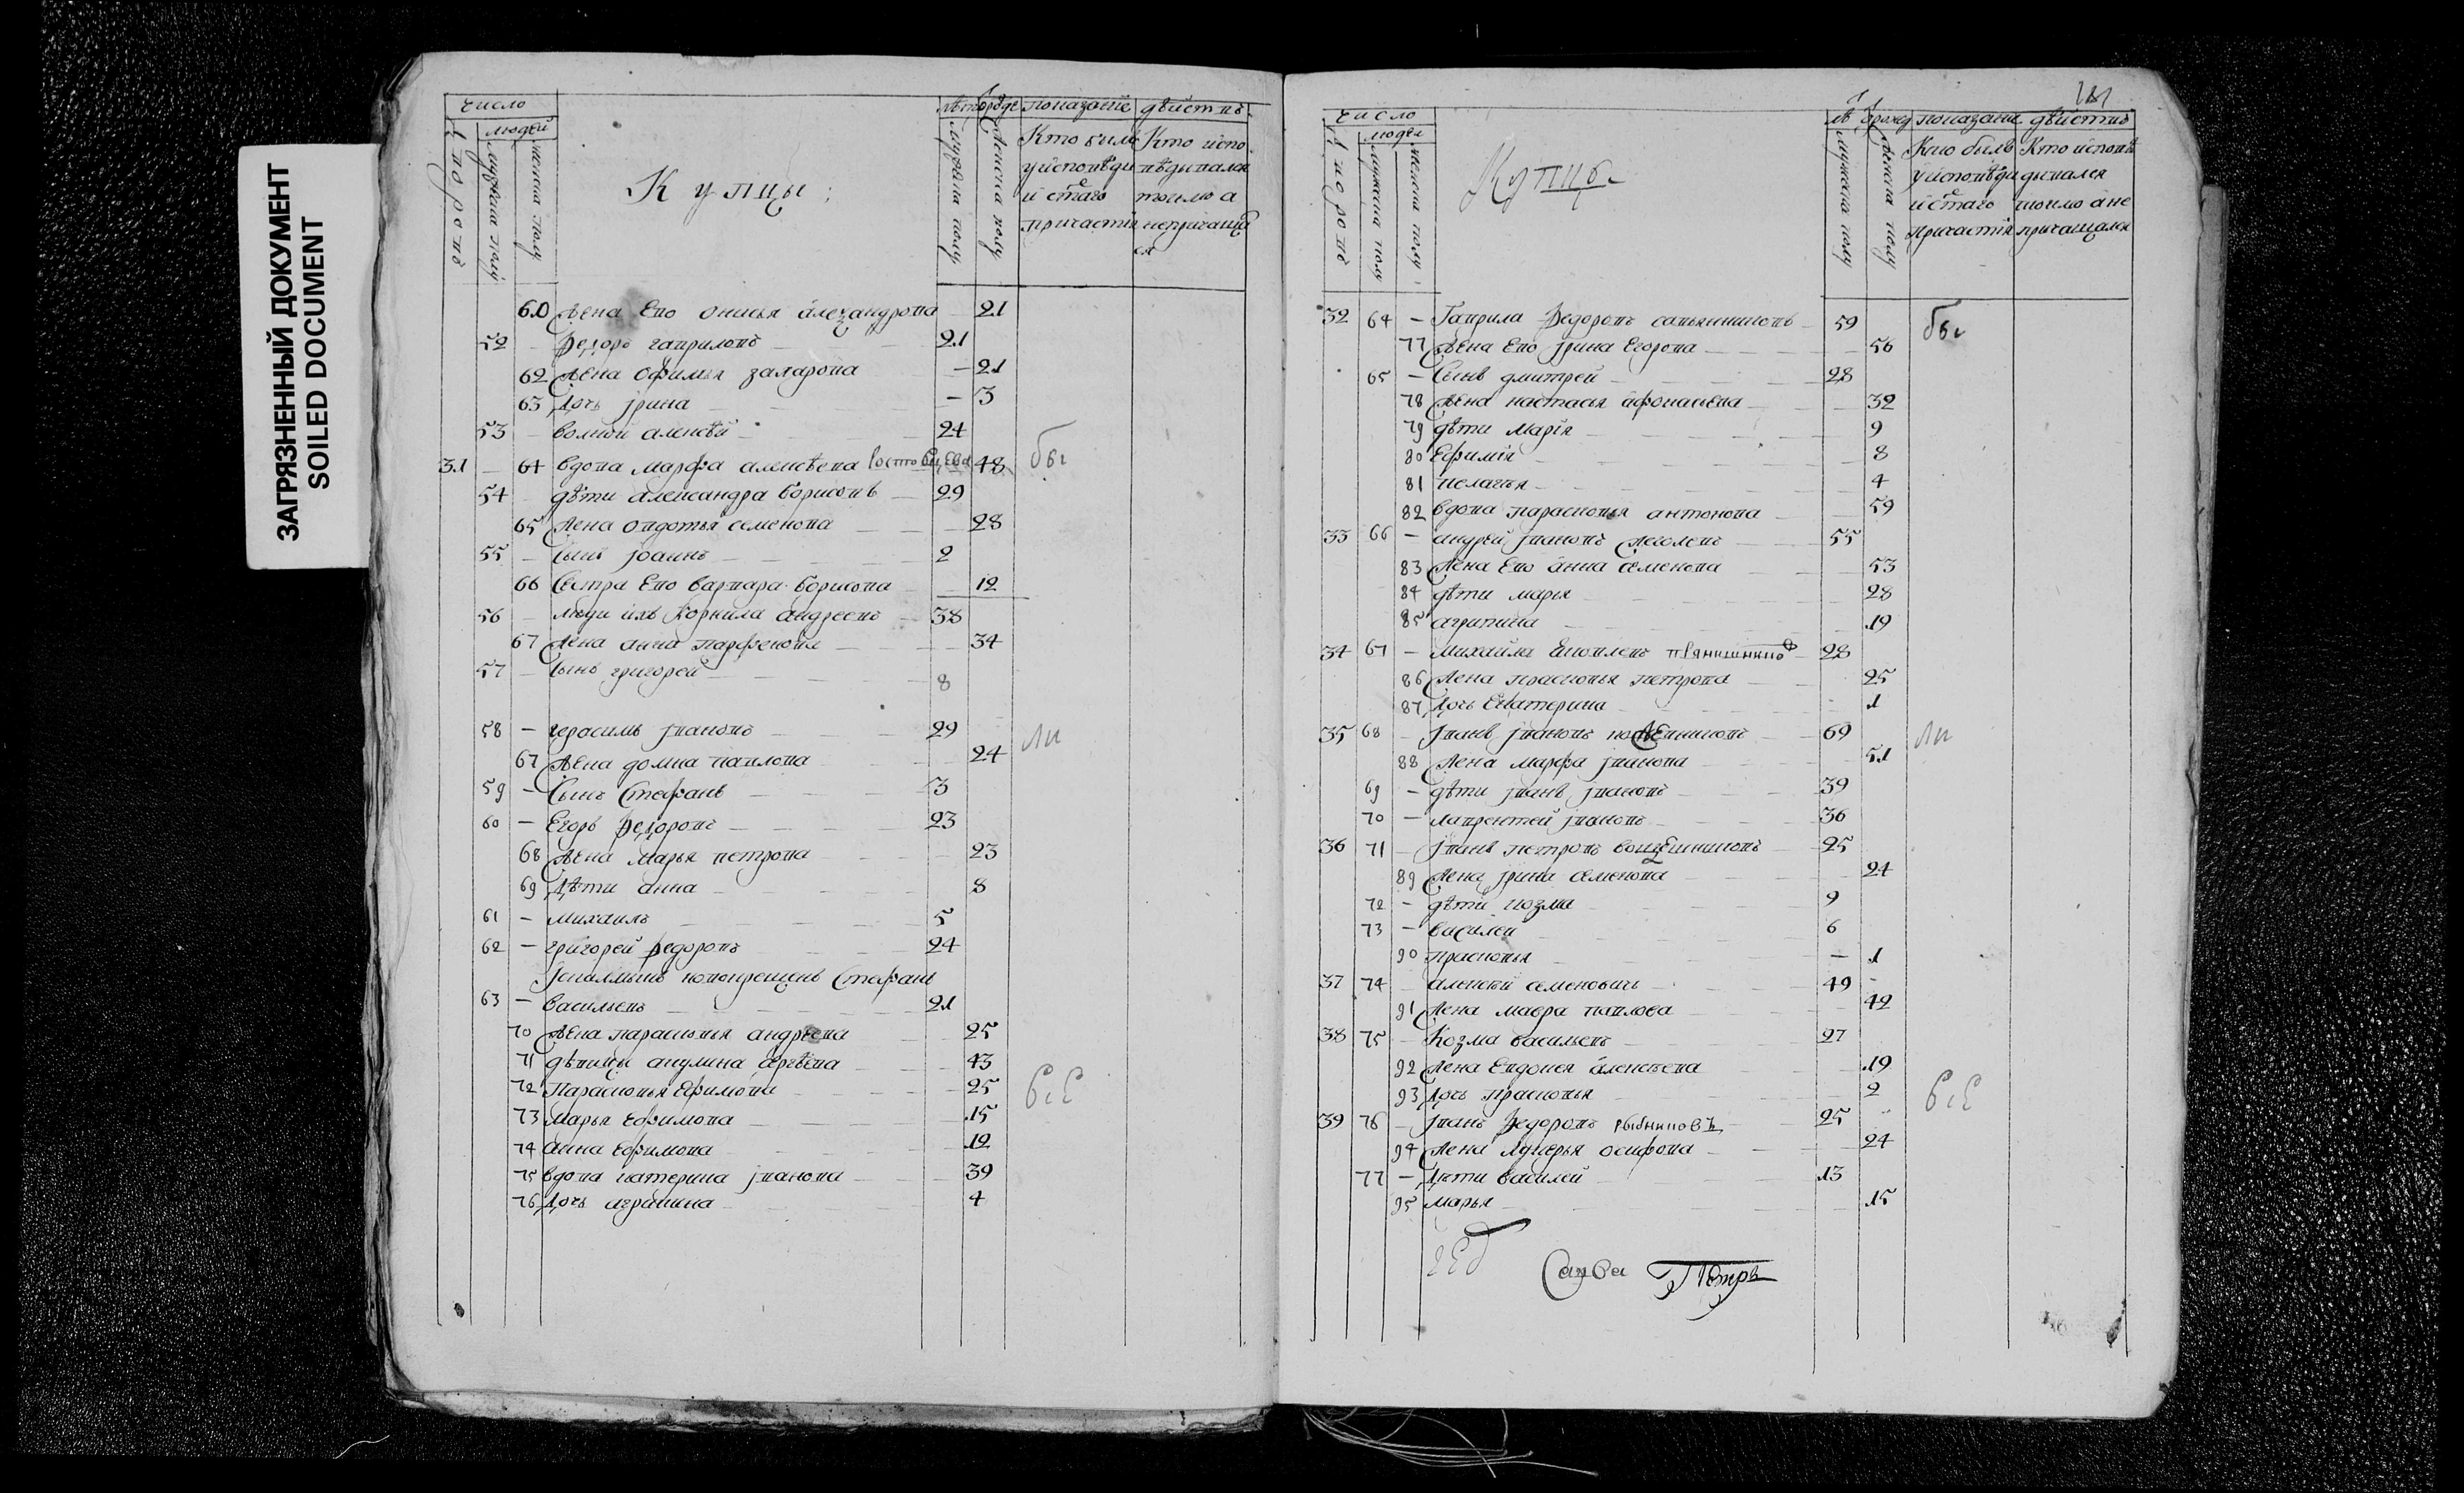 ЗАГРЯЗНЕННЫЙ ДОКУМЕНТ
SOILED DOCUMENT
число
людей
дворовъ
мужеска полу
женска полу
Купцы
лѣт от рожде
мужеска полу
женска полу
показание действъ
Кто былъ у исповѣди и стаго причастия
Кто исповѣдывался токмо а непричащался
60 жена Ево онисья александрова 21
52 Федоръ гавриловъ 21
62 жена офимья захарова 21
63 Дочь ирина 3
53 волной алексѣй 24
31 64 вдова марфа алексѣева Ростовцева 48 бы
54 дѣти александра борисовъ 29
65 жена овдотья семенова 28
55 сынъ иоаннъ 2
66 Сестра Ево варвара борисова 12
56 люди ихъ Корнила андреевъ 38
67 жена анна парфенова 34
57 сынъ григорей 8
58 герасимъ ивановъ 29 ли
67 жена домна павлова 24
59 Сынъ Стефанъ 3
60 Егоръ Федоровъ 23
68 жена марья петрова 23
69 Дѣти анна 8
61 михаилъ 5
62 григорей федоровъ 24
новокрещенъ Стефанъ
63 васильевъ 21
70 жена парасковья андреева 25
71 дѣвицы акулина сергѣева 43
72 Парасковья Ефимова 25 всЕ
73 Марья ефимова 15
74 анна ефимова 12
75 вдова катерина иванова 39
76 Дочь аграфина 4
181
число
людей
дворовъ
мужеска полу
женска полу
Купцы
лѣ от рожд
мужеска полу
женска полу
показание действъ
Кто былъ у исповѣди и стаго причастия
Кто исповѣдывался токмо а не причащался
32 64 Гаврила Федоровъ сапожниковъ 59 бы
77 жена Ево ирина Егорова 56
65 Сынъ дмитрей 28
78 жена настасья афонасьева 32
79 дѣти мария 9
80 Ефимия 8
81 пелагья 4
82 вдова парасковья антонова 59
33 66 андрей ивановъ 55
83 жена Ево анна семенова 53
84 дѣти марья 28
85 агрипина 19
34 67 михайла прянишников 28
86 жена прасковья петрова 25
87 Дочь Екатерина 1
35 68 иванъ ивановъ кожевниковъ 69 ли
88 жена марфа иванова 51
69 дѣти иванъ ивановъ 39
70 лаврентей ивановъ 36
36 71 иванъ петровъ 25
89 жена ирина семенова 24
72 дѣти козма 9
73 василей 6
90 прасковья 1
37 74 алексѣй семеновичъ 49
91 жена мавра павлова 42
38 75 Козма васильевъ 27
92 жена Евдокея алексѣева 19
93 Дочь прасковья 2 всЕ
39 76 иванъ Федоровъ рыбниковъ 25
94 жена лукерья осифова 24
77 Дѣти василей 13
95 марья 15
Савва Петръ